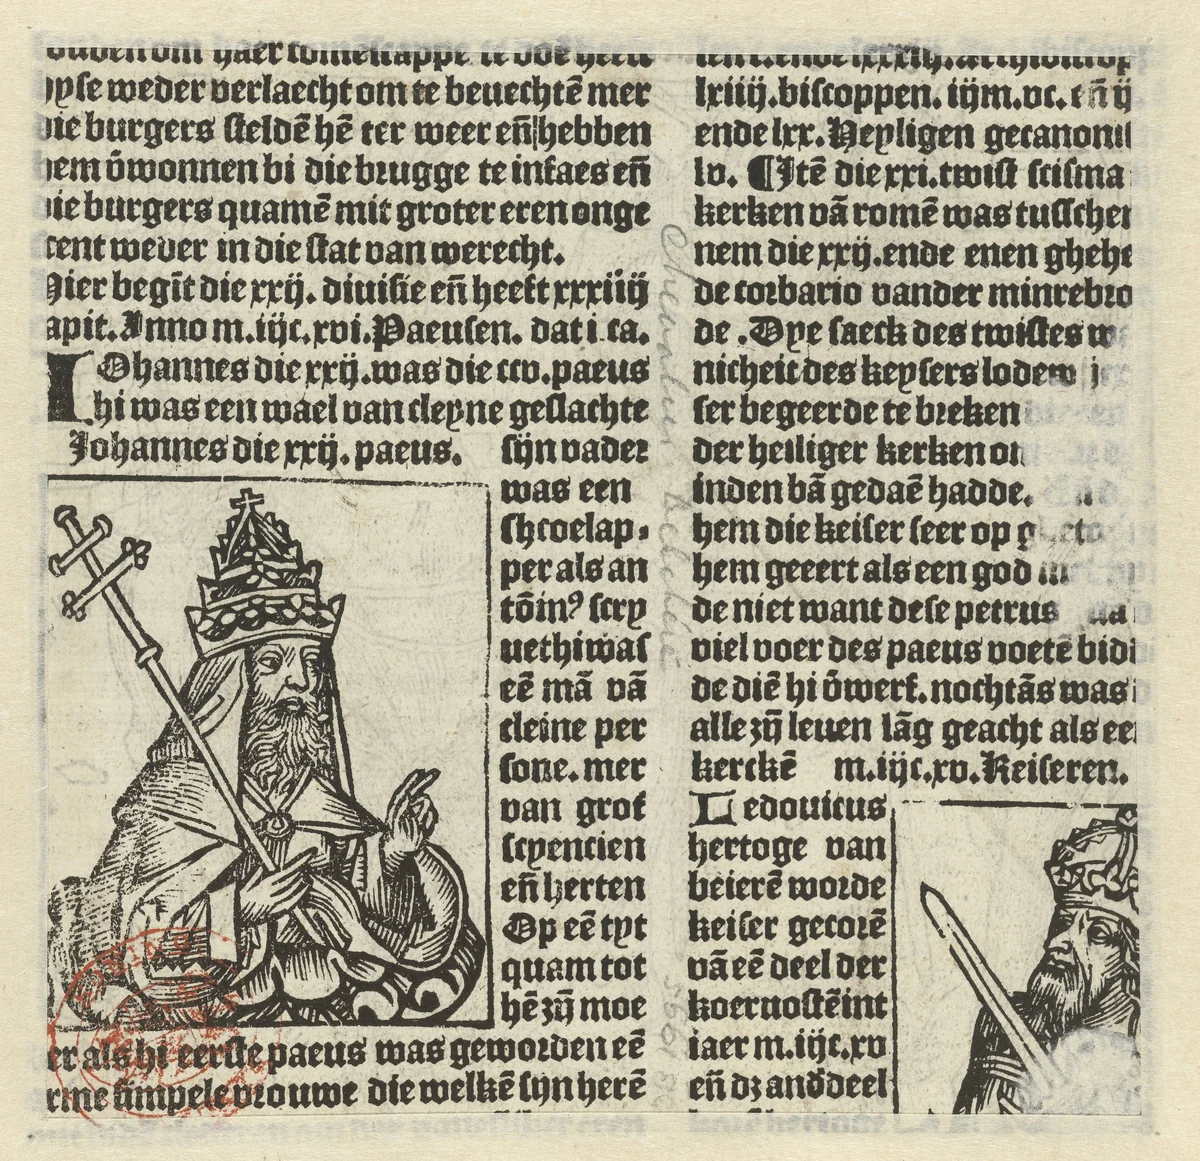 hyse weder verlaecht om te beuechtē mer
die burgers steldē hē ter weer eñ hebben
hem ōwonnen bi die brugge te iutfaes eñ
die burgers quamē mit groter eren onge
scent weder in die stat van wtrecht.
Hier begīt die xxij. diuisie eñ heeft xxxiiij
capit. Anno m.iijc.xvi. Paeusen. dat i.ca.
IOhannes die xxij. was die ccv. paeus
hi was een wael van cleyne geslachte
Johannes die xxij. paeus.
sijn vader
was een
schoelap-
per als an
tōinꝰ scry
uet hi was
eē mā vā
cleine per
sone. mer
van grot
scyencien
eñ herten
Op eē tyt
quam tot
hē zyn moe
er als hi eerste paeus was geworden eē
rme simpele vrouwe die welkē syn herē
lxiiij. biscoppen. iijm.vc. eñ ij
ende lxx. Heyligen gecanoni
lv. ¶ Itē die xxi. twist scisma
kerken vā romē was tusschen
nem die xxij. ende enen ghehe
de corbario vander minrebro
de. Dye saeck des twistes w
nicheit des keysers lodew
ser begeerde te breken
der heiliger kerken om
inden bā gedaē hadde.
hem die keiser seer op g
hem geeert als een god
de niet want dese petrus
viel voer des paeus voetē bidd
de diē hi ōwerf. nochtās was
alle zyn leuen lāg geacht als ee
kerckē m.iijc.xv. Keiseren.
Ledouicus
hertoge van
beierē worde
keiser gecorē
vā eē deel der
koervostē int
iaer m.iijc.xv
eñ dz ander deel